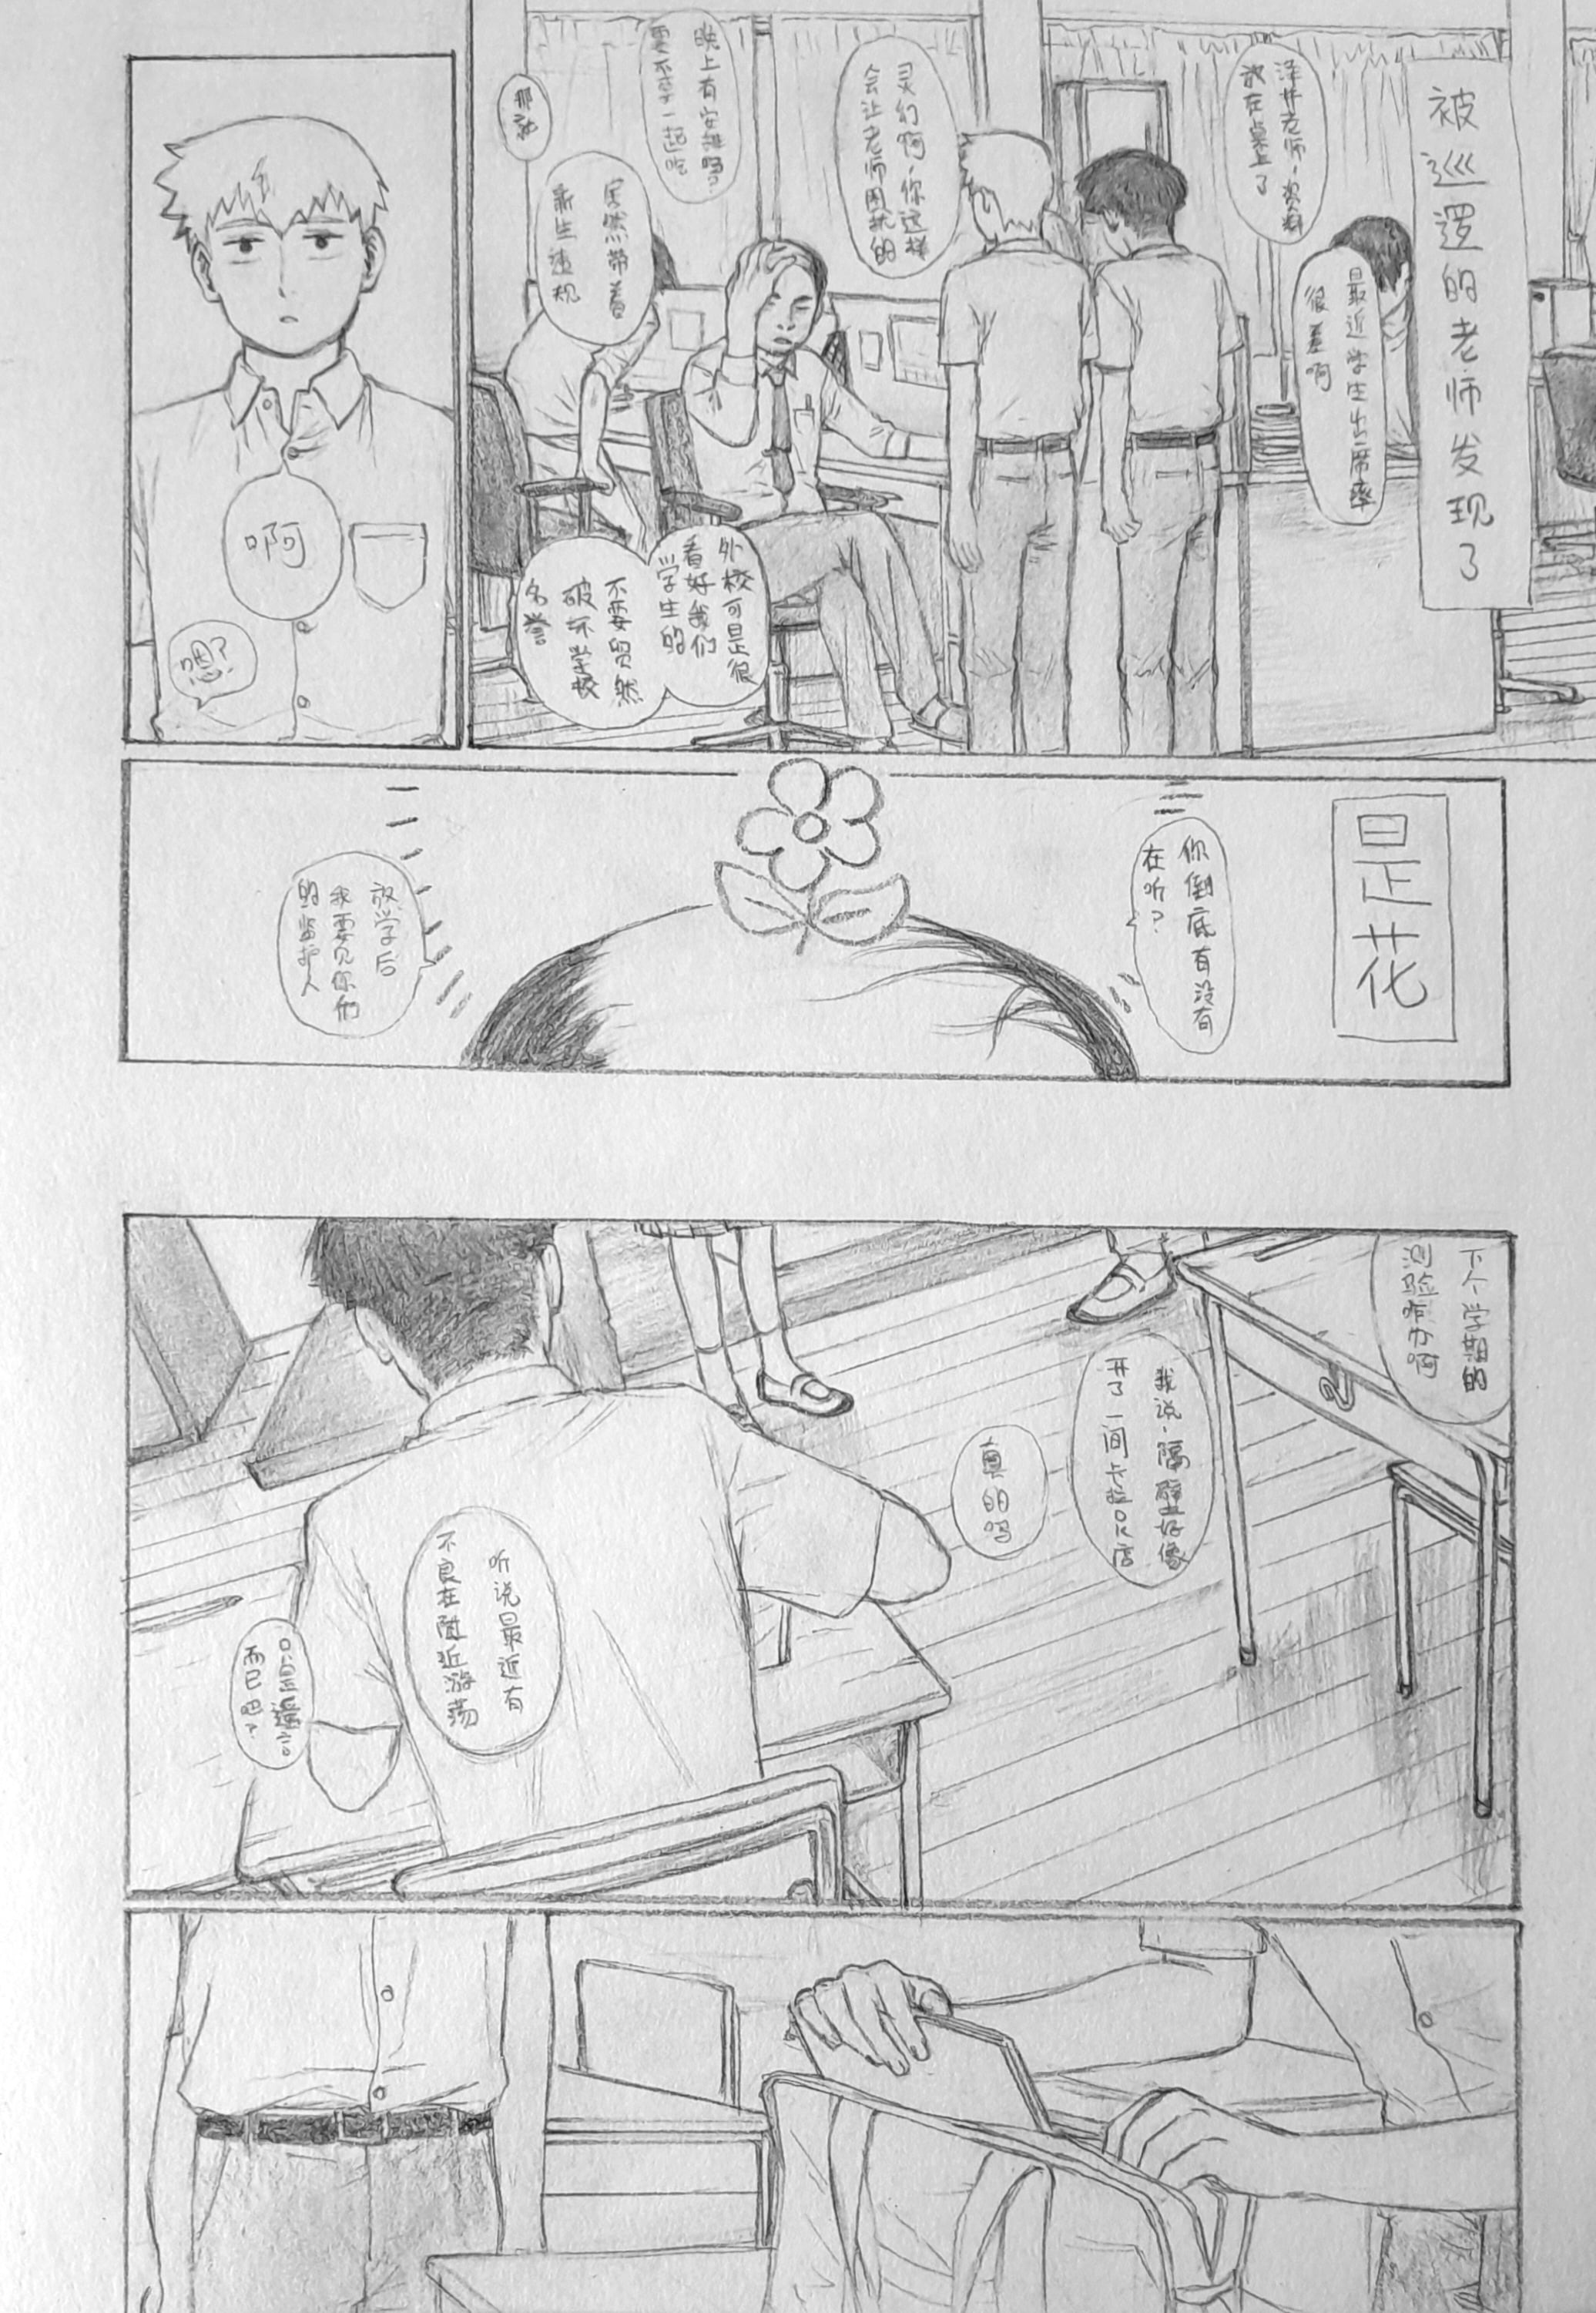 被巡逻的老师发现了
泽井老师，资料
放在桌上了
最近学生出席率
很差啊
灵幻啊，你这样
会让老师困扰的
晚上有安排吗？
要不要一起吃
那就
居然带着
新生违规
外校可是很
看好我们
学生的
不要贸然
破坏学校
名誉
啊
嗯？
是花
你倒底有没有
在听？
放学后
我要见你们
的监护人
下个学期的
测验咋办啊
我说，隔壁好像
开了一间卡拉OK店
真的吗
听说最近有
不良在附近游荡
只是谣言
而已吧？